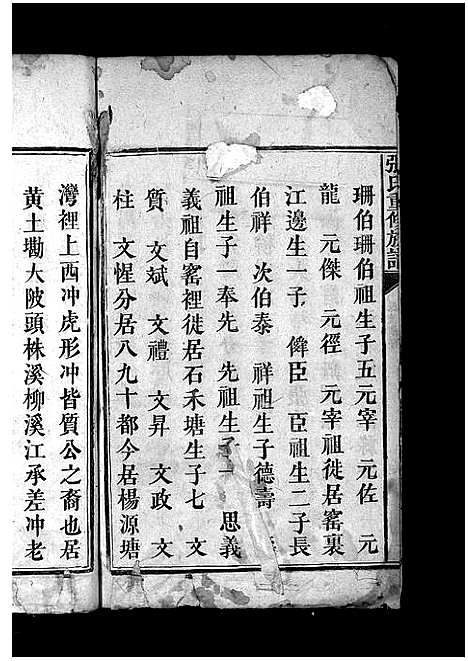 張氏重修族譜
珊伯珊伯祖生子五元宰 元佐 元
龍 元傑 元徑 元宰祖徙居窰裏
江邊生一子 僯臣 臣祖生二子長
伯祥 次伯泰 祥祖生子德壽
祖生子一奉先 先祖生子一 思義
義祖自窰裡徙居石禾塘生子七 文
質 文斌 文禮 文昇 文政 文
柱 文惺分居八九十都今居楊源塘
灣裡上西冲虎形冲皆質公之裔也居
黄土墈大陂頭株溪柳溪江承差冲老